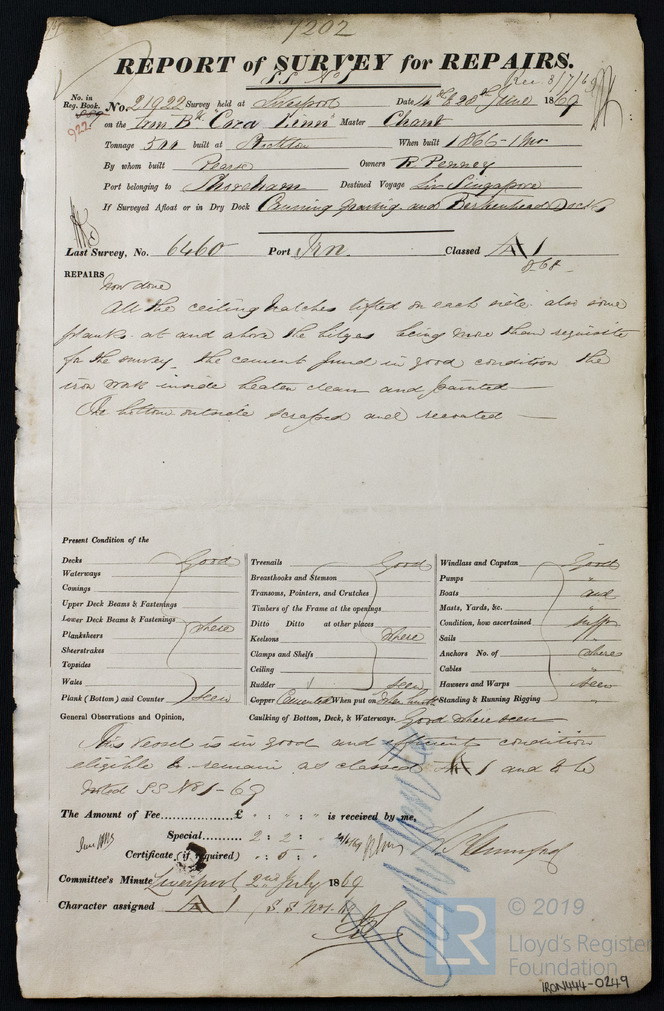 7202
REPORT of SURVEY for REPAIRS.
SS No 1
Rec 8/7/69
No. in Reg. Book.
922
No. 21922 Survey held at Liverpool Date, 14th & 28th June 1869
on the Iron Bk "Cora Linn" Master Chant
Tonnage 500 built at Stockton When built 1866 - 1 Mo
By whom built Pearse Owners R. Penney
Port belonging to Shoreham Destined Voyage Liv Singapore
If Surveyed Afloat or in Dry Dock Canning Graving and Birkenhead Docks
Last Survey, No. 6460 Port Irn Classed A 1
8,68
REPAIRS now done
All the ceiling hatches lifted on each side also some
planks at and above the bilges being more than requisite
for the survey, the cement found in good condition the
iron work inside beaten clean and painted
The bottom outside scraped and recoated
Present Condition of the
Decks Good
Waterways
Comings
Upper Deck Beams & Fastenings
Lower Deck Beams & Fastenings
Planksheers where
Sheerstrakes
Topsides
Wales
Plank (Bottom) and Counter seen
Treenails Good
Breasthooks and Stemson
Transoms, Pointers, and Crutches
Timbers of the Frame at the openings
Ditto Ditto at other places
Keelsons where
Clamps and Shelfs
Ceiling
Rudder seen
Copper Cemented When put on
Windlass and Capstan Good
Pumps "
Boats and
Masts, Yards, &c. "
Condition, how ascertained suffn
Sails "
Anchors No. of where
Cables "
Hawsers and Warps seen
Standing & Running Rigging "
General Observations and Opinion, Caulking of Bottom, Deck, & Waterways. Good where seen
This vessel is in good and efficient condition
eligible to remain as classed A 1 and to be
noted SS No 1 - 69
The Amount of Fee............£ " : " : " is received by me,
Special......... 2 : 2 : "
Certificate (if required) " : 5 : "
Committee's Minute Liverpool 2nd July 1869
Character assigned A 1 S.S. No 1. 69
LR
© 2019
Lloyd's Register
Foundation
IRON444-0249